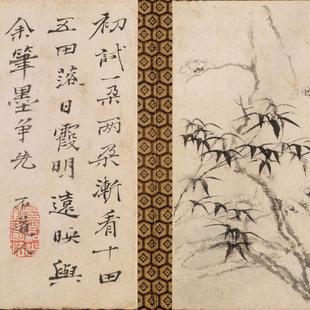 初試一朶兩朶漸看十田
五田落日霞明遠映與
余筆墨爭先
石濤